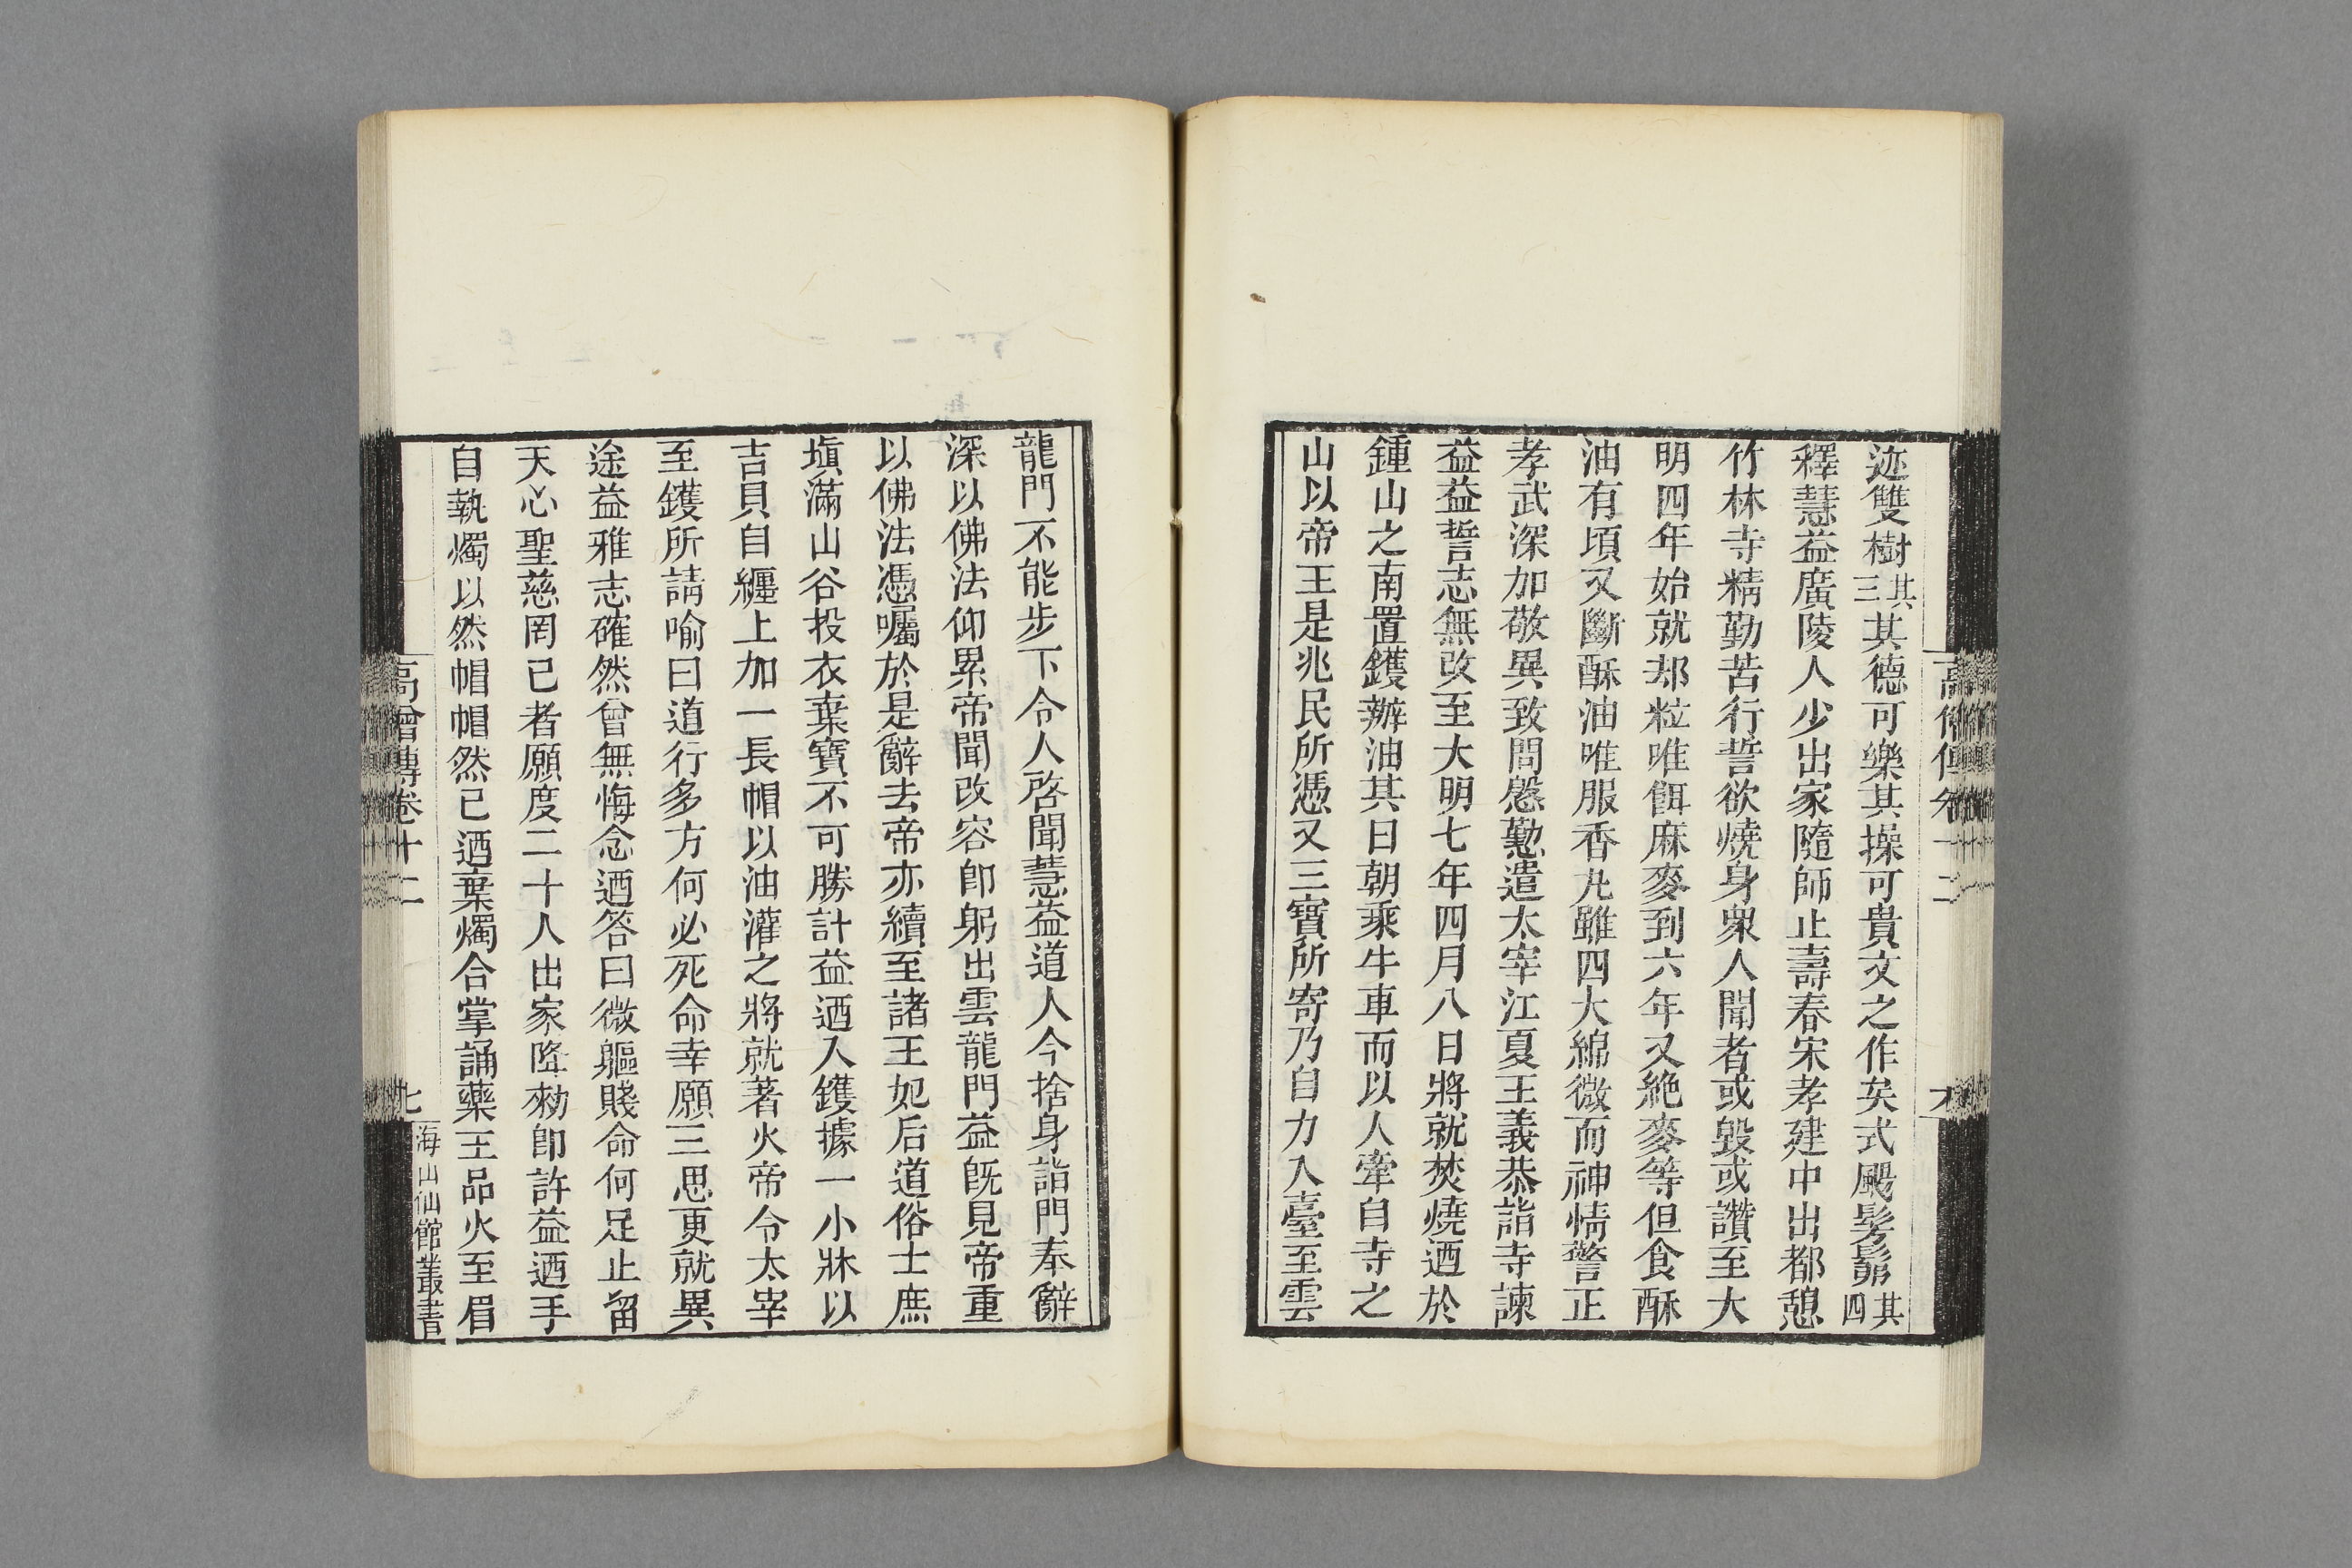 迹雙樹其三其德可樂其操可貴文之作矣式颺髣髴其四
釋慧益廣陵人少出家隨師止壽春宋孝建中出都憩
竹林寺精勤苦行誓欲燒身衆人聞者或毀或讚至大
明四年始就却粒唯餌麻麥到六年又絶麥等但食酥
油有頃又斷酥油唯服香丸雖四大綿微而神情警正
孝武深加敬異致問慇懃遣太宰江夏王義恭詣寺諫
益益誓志無改至大明七年四月八日將就焚燒迺於
鍾山之南置鑊辦油其日朝乘牛車而以人牽自寺之
山以帝王是兆民所憑又三寶所寄乃自力入臺至雲
龍門不能步下令人啓聞慧益道人今捨身詣門奉辭
深以佛法仰累帝聞改容即躬出雲龍門益旣見帝重
以佛法憑囑於是辭去帝亦續至諸王妃后道俗士庶
塡滿山谷投衣棄寶不可勝計益迺入鑊據一小牀以
吉貝自纒上加一長帽以油灌之將就著火帝令太宰
至鑊所請喻曰道行多方何必死命幸願三思更就異
途益雅志確然曾無悔念迺答曰微軀賤命何足止留
天心聖慈罔已者願度二十人出家降勑即許益迺手
自執燭以然帽帽然已迺棄燭合掌誦藥王品火至眉
高僧傳卷十二
七
海山仙館叢書